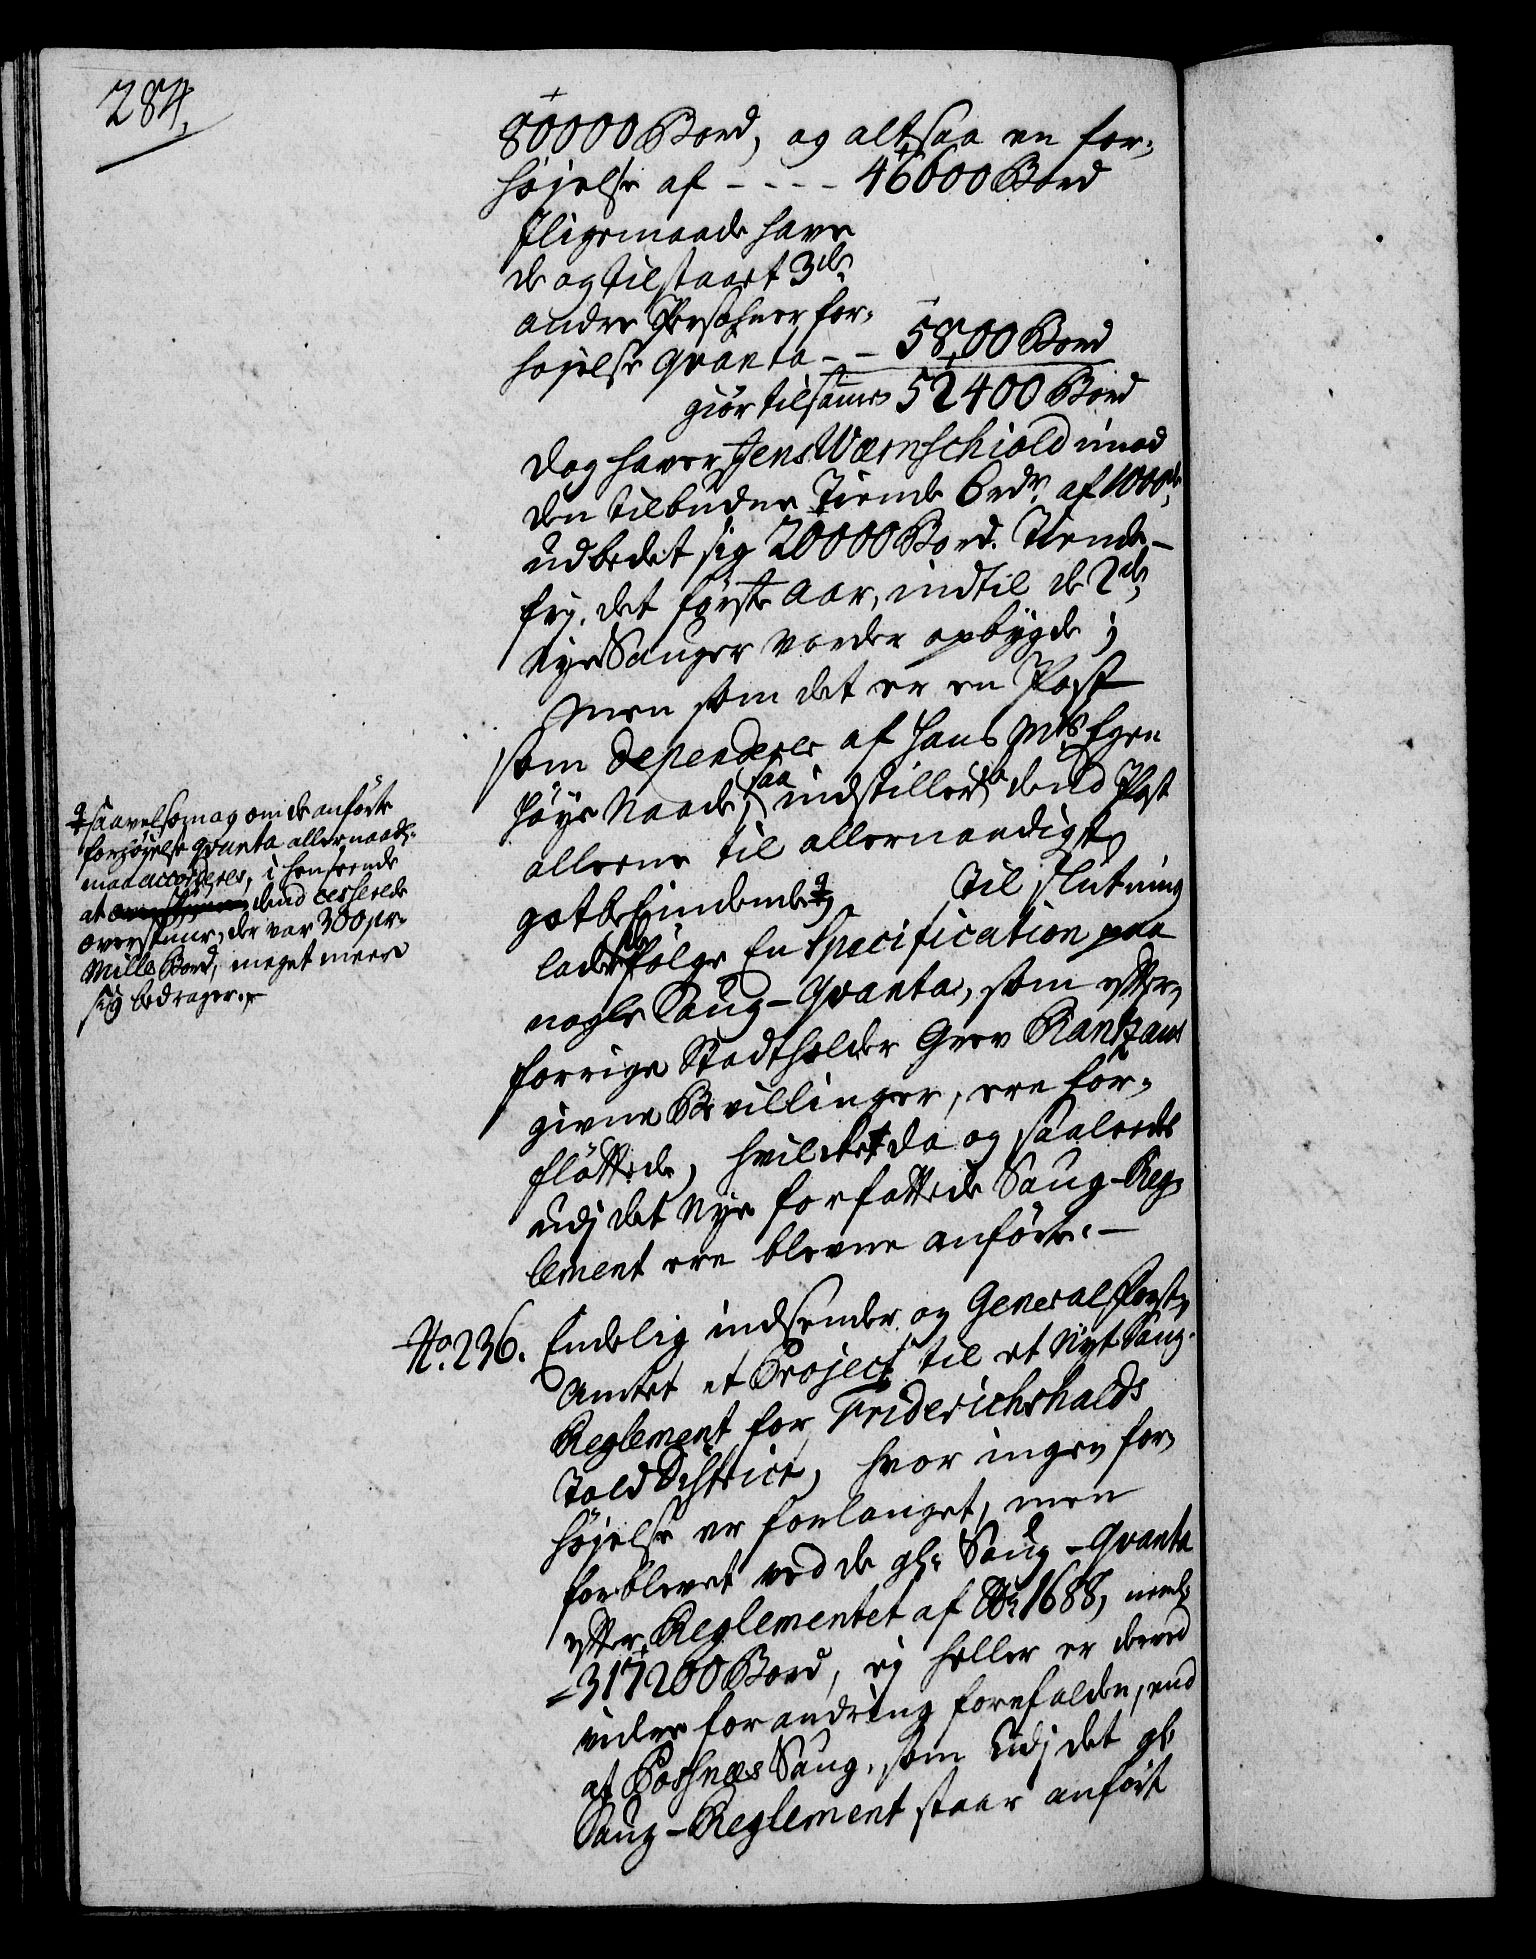 284.
80000 Bord, og altsaa en for-
høyelse af - - - - 46600 Bord
Iligemaade have
de og tilstaaet 3de
andre Persohner for-
høyelse qvanta - - 5800 Bord
giør tilsammes 52400 Bord
Dog haver Jens Wærnschiold imod
den tilbudne Tiende Ordr. af 1000de
udbedet sig 20000 Bord. Tiende-
fri, det første Aar, indtil de 2de
nye Sauger vorder opbygde;
Men som det er en Post
som dependerer af Hans Mts Egen
høye Naade, saa indstilles dend Post
alleene til allernaadigst
gotbefindende Til slutning
lader følge En Specification paa
nogle Saug-Qvanta, som efter
forrige Stadtholder Grev Rantzaus
givne Bevillinger, ere for-
fløttede, hvilcket da og saaleedes
udj det Nye forfattede Saug-Reg-
lement ere blevne anførte. -
saavelsom og om de anførte
forhøyelse qvanta allernaadt
maa accorderes, i henseende
at dend casserede
overskuur, der var 300 pr
Mille Bord, meget meere
sig bedrager.
No. 236. Endelig indsender og General Forst-
Amtet et Project til et Nyt Saug-
Reglement for Friderichshalds
Told District, hvor ingen for-
høyelse er forlanget, men
forblevet ved de gl. Saug-Qvanta
efter Reglementet af Ao 1688, neml.
- 317200 Bord, ej heller er derved
viidere forandring forefalden, end
at Bosnæs Saug, som Udj det gl.
Saug-Reglement staar anført